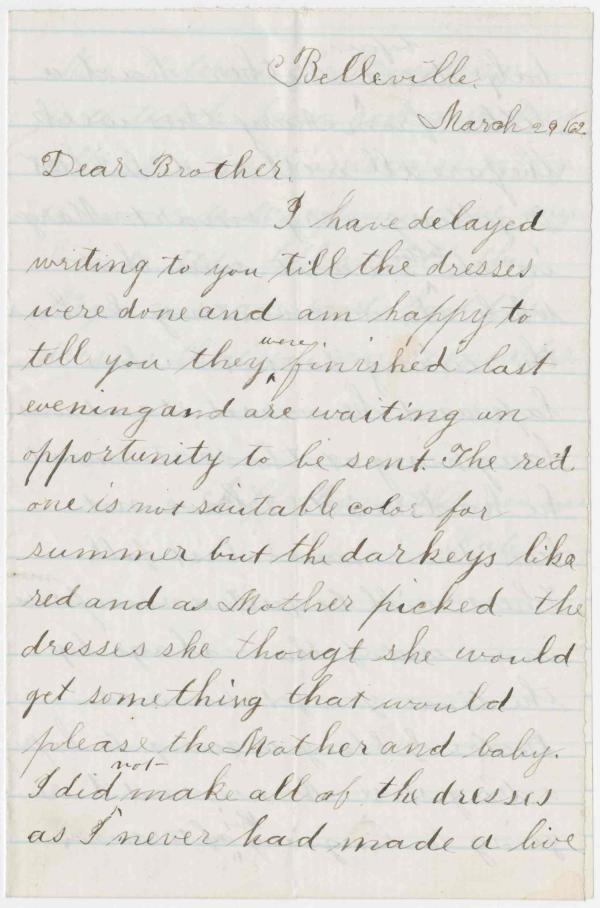 Belleville.
March 29/62
Dear Brother.
I have delayed
writing to you till the dresses
were done and am happy to
tell you they were finished last
evening and are waiting an
opportunity to be sent. The red
one is not suitable color for
summer but the darkeys like
red and as Mother picked the
dresses she thougt she would
get something that would
please the Mother and baby.
I did not make all of the dresses
as I never had made a live